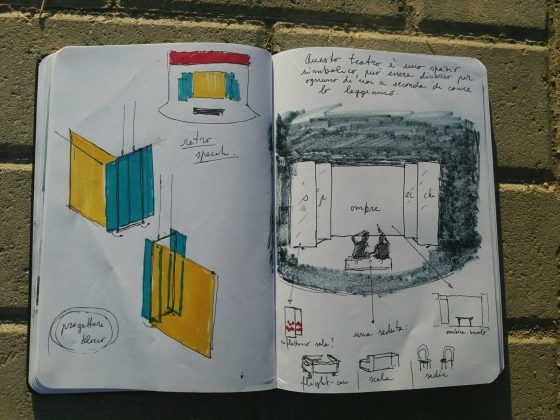 retro
specch.
progettare
blocco
Questo teatro è uno spazio
simbolico, può essere diverso per
ognuno di noi a seconda di come
lo leggiamo.
ombre
una seduta:
ombre teatro
flight-case
scala
sedie